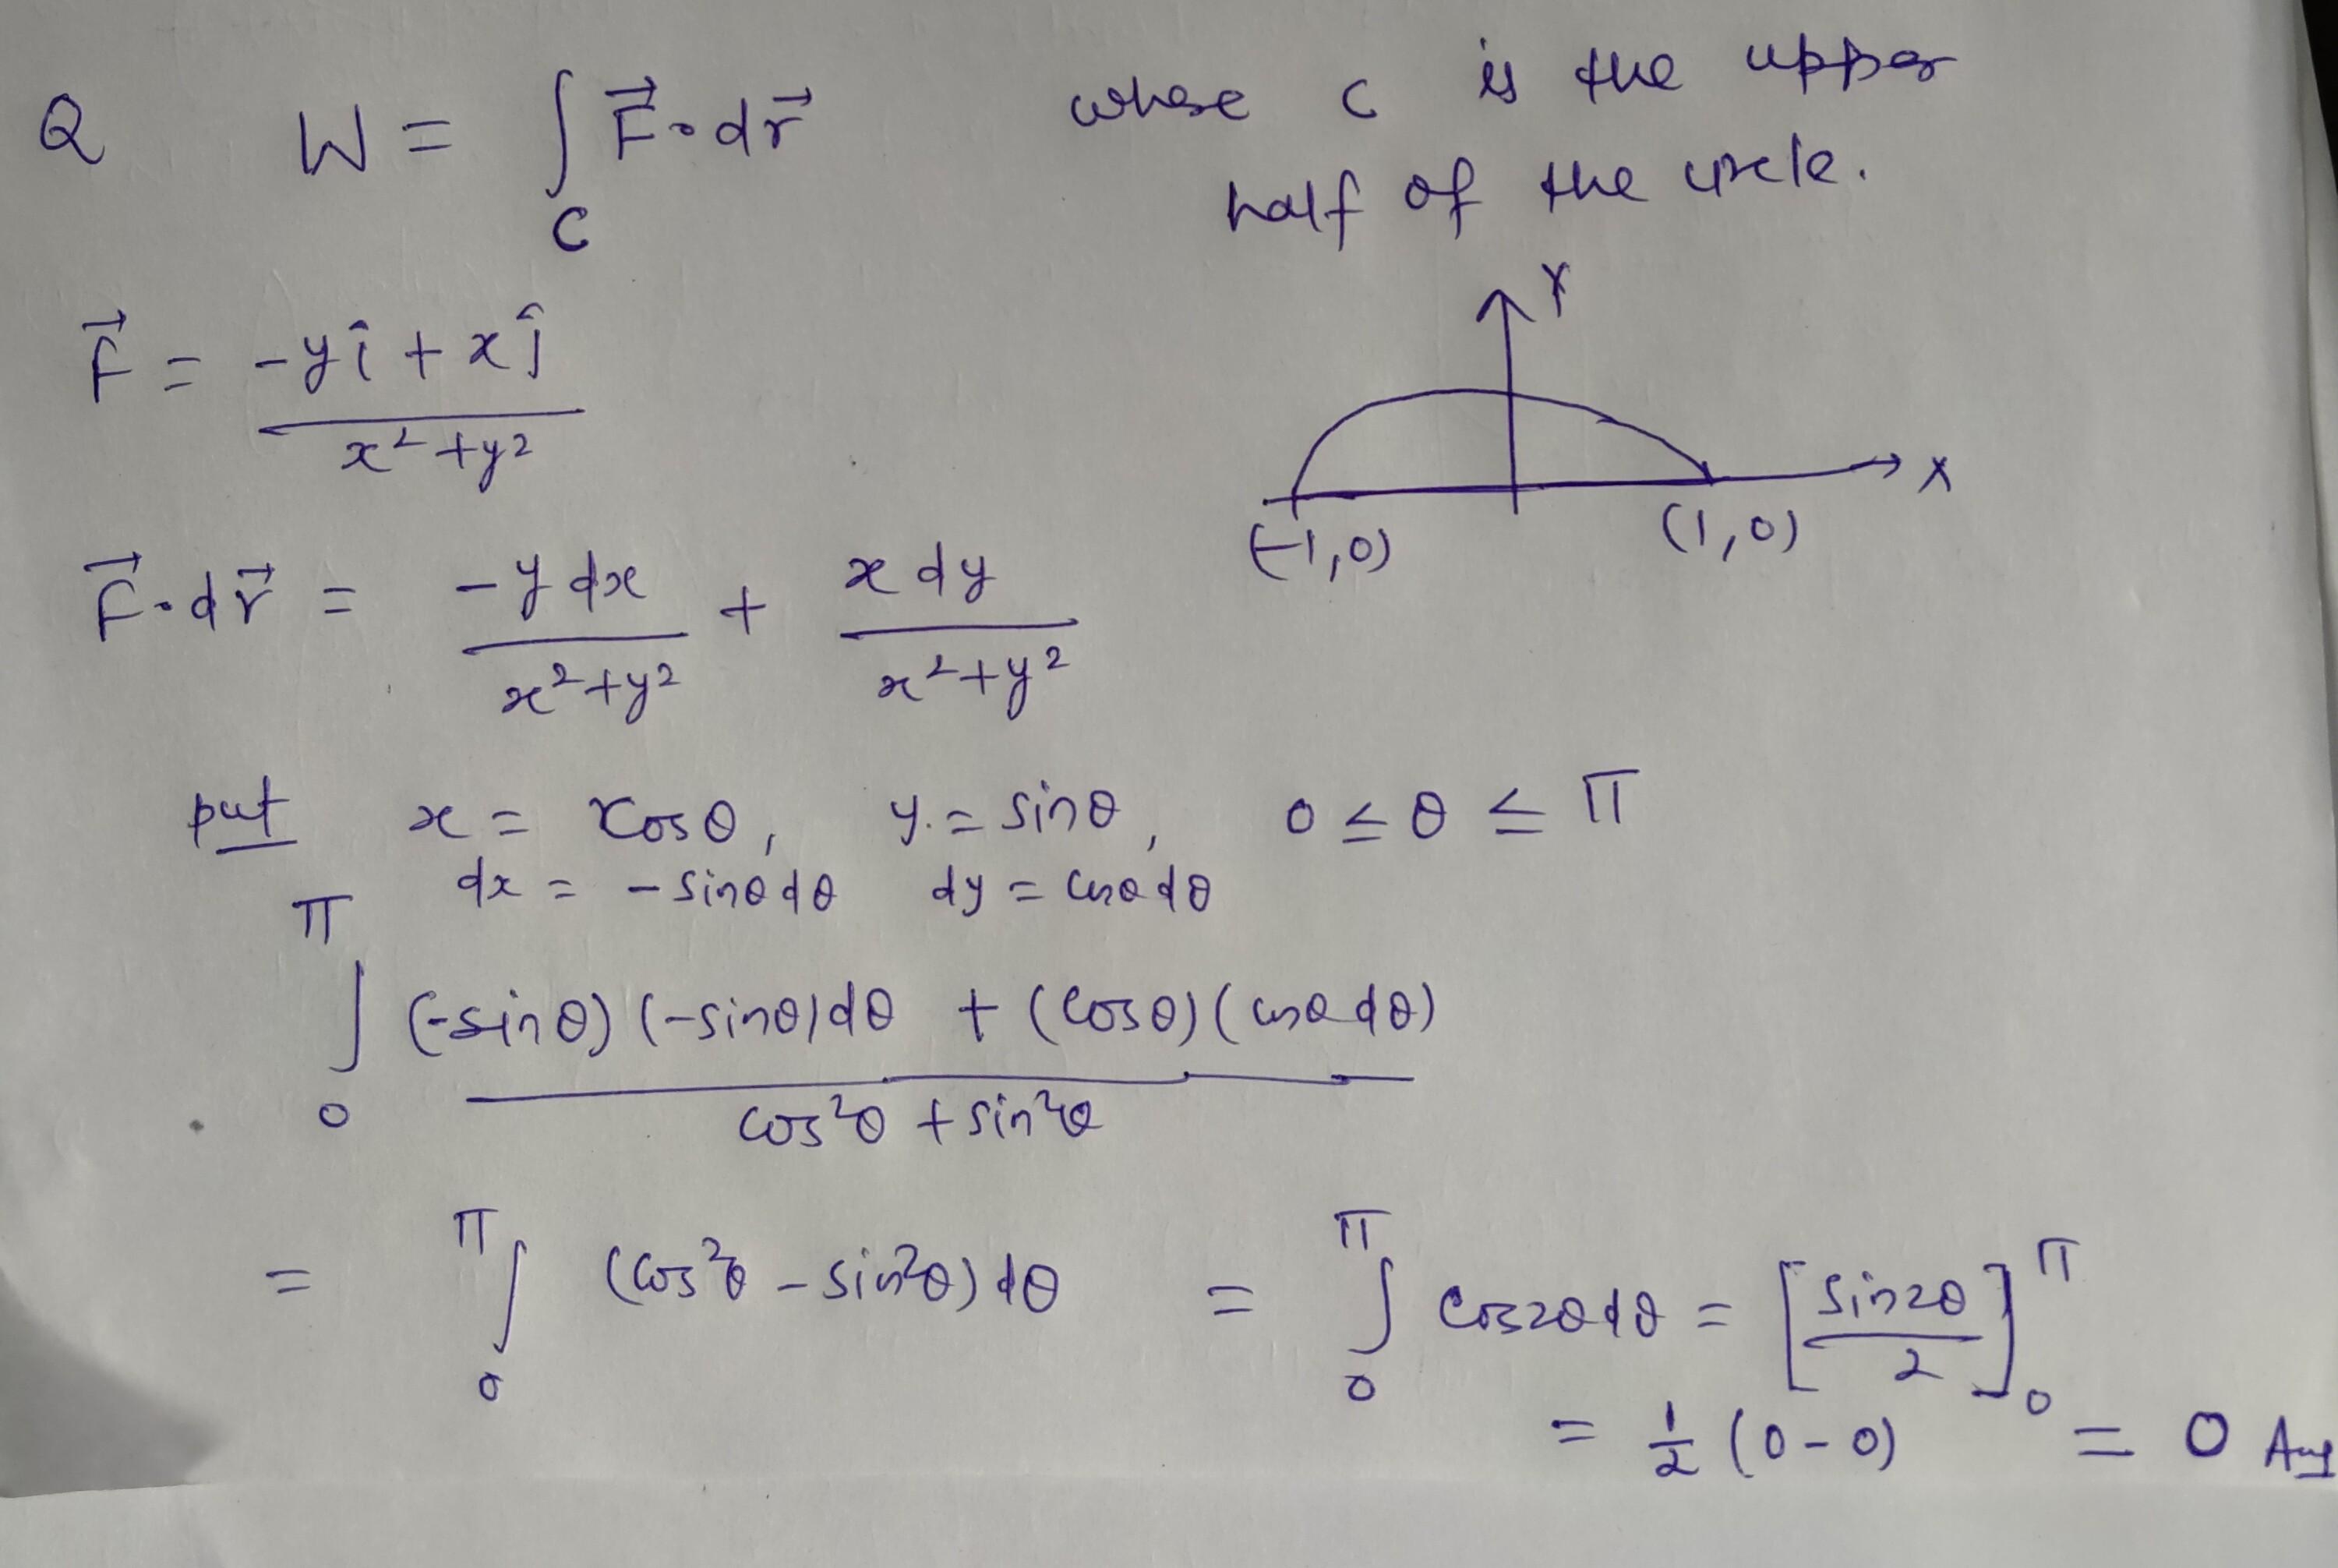 Q W = ∫_C F⃗·dr⃗ where C is the upper
half of the circle.
F⃗ = (-yî + xĵ)/(x² + y²)
Y
X
(-1,0) (1,0)
F⃗·dr⃗ = -y dx/(x²+y²) + x dy/(x²+y²)
put x = cosθ, y = sinθ, 0 ≤ θ ≤ π
dx = -sinθdθ dy = cosθdθ
∫_0^π ((-sinθ)(-sinθ)dθ + (cosθ)(cosθdθ))/(cos²θ + sin²θ)
= ∫_0^π (cos²θ - sin²θ)dθ = ∫_0^π cos2θdθ = [sin2θ/2]_0^π
= 1/2 (0-0) = 0 Ans